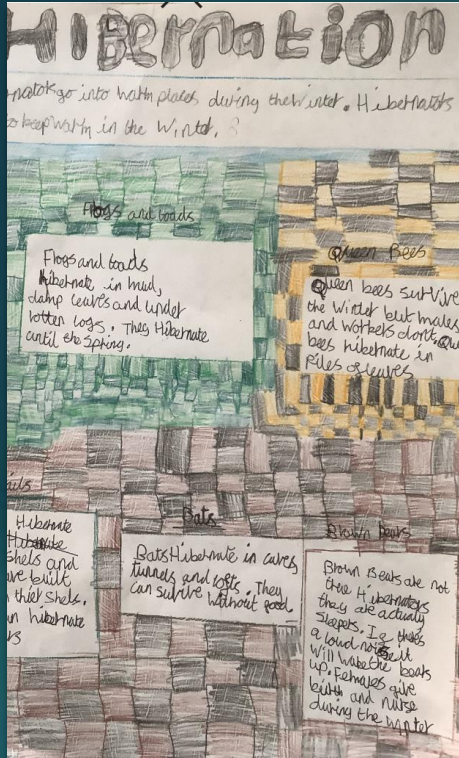 HIBernation
go into warm places during the winter. Hibernators
keep warm in the Winter.
Frogs and toads
Frogs and toads
Hibernate in mud,
damp leaves and under
rotten logs. They Hibernate
until the Spring.
Queen Bees
Queen bees survive
the Winter but males
and workers don't.
bees hibernate in
Piles of leaves
Hibernate
Shels and
built
their Shels.
hibernate
Bats
Bats Hibernate in caves
tunnels and lofts. They
can survive without food.
Brown Bears
Brown Bears are not
true Hibernators
they are actualy
Sleepers. If theirs
a loud noise it
will wake the bears
up. Females give
birth and nurse
during the winter